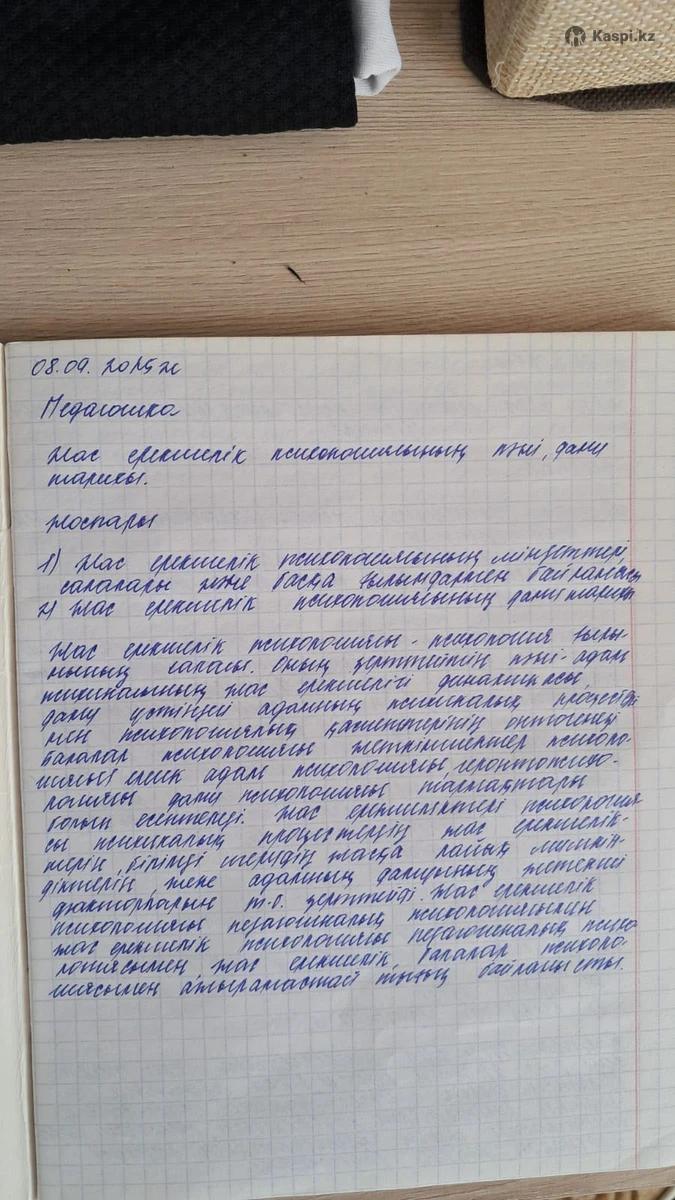 Kaspi.kz
08.09.2025ж
Педагогика
Жас ерекшелік психологиялының пәні, даму
тарихы.
жоспары
1) Жас ерекшелік психологиялының міндеттері,
салалары және басқа ғылымдармен байланысы
2) Жас ерекшелік психологиясының даму тарихы
Жас ерекшелік психологиясы - психология ғылы-
мының саласы. Оның зерттейтін пәні - адам
психикалының жас ерекшелігі динамикасы,
даму үстіндегі адамның психикалық процестері
мен психологиялық қасиеттерінің онтогенезі
балалар психологиясы жеткіншектер психоло-
гиясы ересек адам психологиясы, геронтопсихо-
логиясы даму психологиясы тармақтары
болып есептеледі. Жас ерекшеліктері психология
сы психикалық процестердің жас ерекшелік-
терін, білімді игерудің жасқа лайық мүмкін-
діктерін, және адамның дамуының жетекші
факторларын т.б. зерттейді. Жас ерекшелік
психологиясы педагогикалық психологиясымен
жас ерекшелік психологиясы педагогикалық психо
логиясымен, жас ерекшелік, балалар психоло-
гиясымен ажырамастай тығыз байланысты.